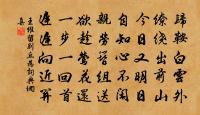 歸鞍白雲外
繚繞出前山
今日又明日
自知心不閑
親勞簪組送
欲趁鶯花還
一步一回首
遲遲向近關
王維留別丘為詩詞典網
集